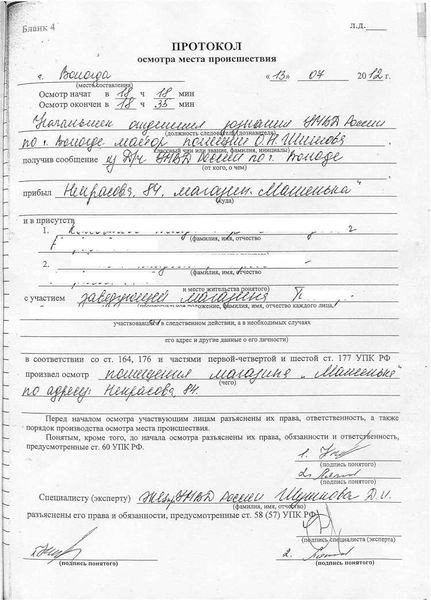 Бланк 4
Л.Д.
ПРОТОКОЛ
осмотра места происшествия
г. Вологда «13» 07 2012 г.
(место составления)
Осмотр начат в 18 ч 18 мин
Осмотр окончен в 18 ч 35 мин
Начальник отделения дознания УМВД России
(должность следователя (дознавателя),
по г. Вологде майор полиции О.Н. Шитова
классный чин или звание, фамилия, инициалы)
получив сообщение из Д/ч УМВД России по г. Вологде
(от кого, о чем)
прибыл Некрасова, 84, магазин „Машенька"
(куда)
и в присутствии
1.
(фамилия, имя, отчество
2.
(фамилия, имя, отчество
и место жительства понятого)
с участием заведующей магазина П
(процессуальное положение, фамилия, имя, отчество каждого лица,
участвовавшего в следственном действии, а в необходимых случаях
его адрес и другие данные о его личности)
в соответствии со ст. 164, 176 и частями первой-четвертой и шестой ст. 177 УПК РФ
произвел осмотр помещения магазина „Машенька"
(чего)
по адресу: Некрасова, 84.
Перед началом осмотра участвующим лицам разъяснены их права, ответственность, а также
порядок производства осмотра места происшествия.
Понятым, кроме того, до начала осмотра разъяснены их права, обязанности и ответственность,
предусмотренные ст. 60 УПК РФ.
1.
(подпись понятого)
2.
(подпись понятого)
Специалисту (эксперту) УМВД России
(фамилия, имя, отчество)
разъяснены его права и обязанности, предусмотренные ст. 58 (57) УПК РФ
(подпись специалиста (эксперта)
2.
(подпись понятого) (подпись понятого)